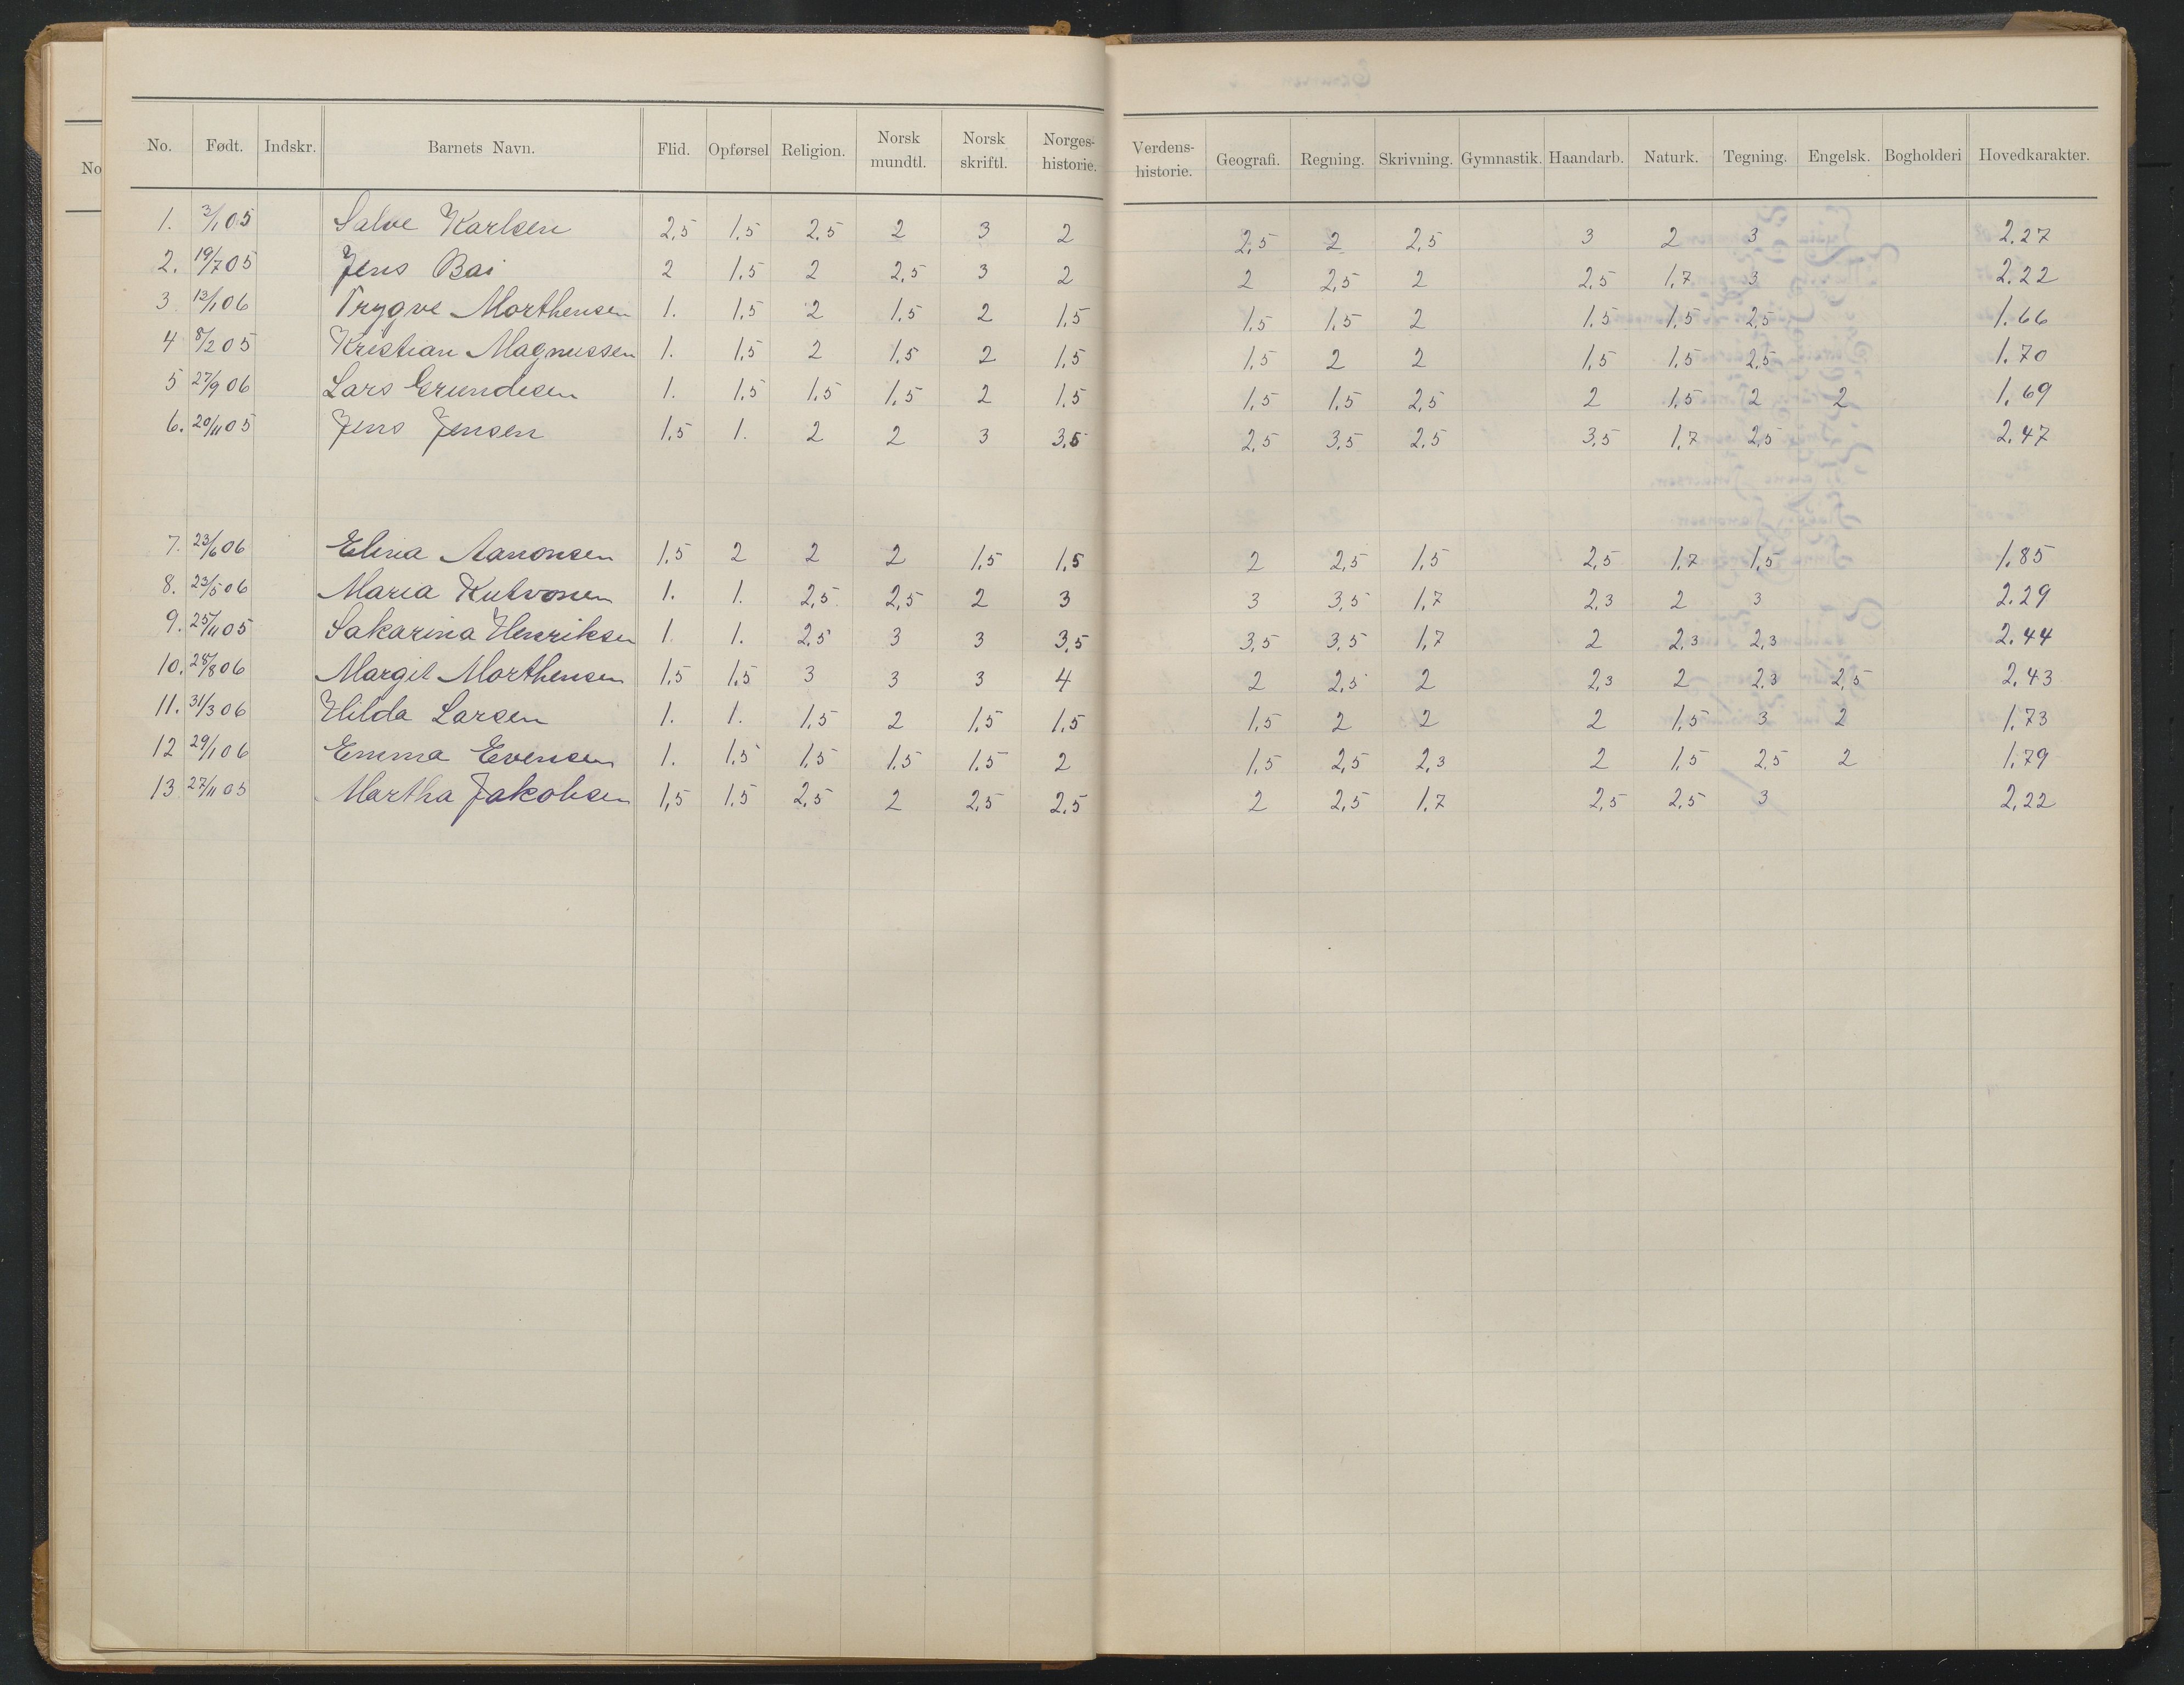 No. Født. Indskr. Barnets Navn. Flid. Opførsel Religion. Norsk mundtl. Norsk skriftl. Norges-historie. Verdens-historie. Geografi. Regning. Skrivning. Gymnastik. Haandarb. Naturk. Tegning. Engelsk. Bogholderi Hovedkarakter.
No
1. 3/1 05 Salve Karlsen 2,5 1,5 2,5 2 3 2 2,5 2 2,5 3 2 3 2.27
2. 19/7 05 Jens Bai 2 1.5 2 2,5 3 2 2 2,5 2 2,5 1,7 3 2.22
3 13/1 06 Trygve Morthensen 1. 1,5 2 1.5 2 1,5 1,5 1,5 2 1.5 1,5 2,5 1.66
4 8/2 05 Kristian Magnussen 1. 1,5 2 1,5 2 1,5 1,5 2 2 1,5 1,5 2,5 1.70
5 27/9 06 Lars Grundesen 1. 1,5 1,5 1,5 2 1,5 1,5 1,5 2,5 2 1,5 2 2 1,69
6. 20/11 05 Jens Jensen 1,5 1. 2 2 3 3,5 2,5 3,5 2,5 3,5 1,7 2,5 2.47
7. 23/6 06 Elina Aanonsen 1,5 2 2 2 1,5 1,5 2 2,5 1,5 2,5 1,7 1,5 1.85
8. 23/5 06 Maria 1. 1. 2,5 2,5 2 3 3 3,5 1,7 2,3 2 3 2.29
9. 25/11 05 Sakarina Henriksen 1. 1. 2,5 3 3 3,5 3,5 3,5 1,7 2 2,3 2,3 2.44
10. 28/8 06 Margit Morthensen 1,5 1,5 3 3 3 4 2 2,5 2 2,3 2 2,3 2,5 2,43
11. 31/3 06 Hilda Larsen 1. 1. 1,5 2 1,5 1,5 1,5 2 2 2 1,5 3 2 1,73
12 29/1 06 Emma Evensen 1. 1,5 1,5 1,5 1,5 2 1,5 2,5 2,3 2 1,5 2,5 2 1,79
13 27/11 05 Martha Jakobsen 1,5 1,5 2,5 2 2,5 2,5 2 2,5 1,7 2,5 2,5 3 2,22